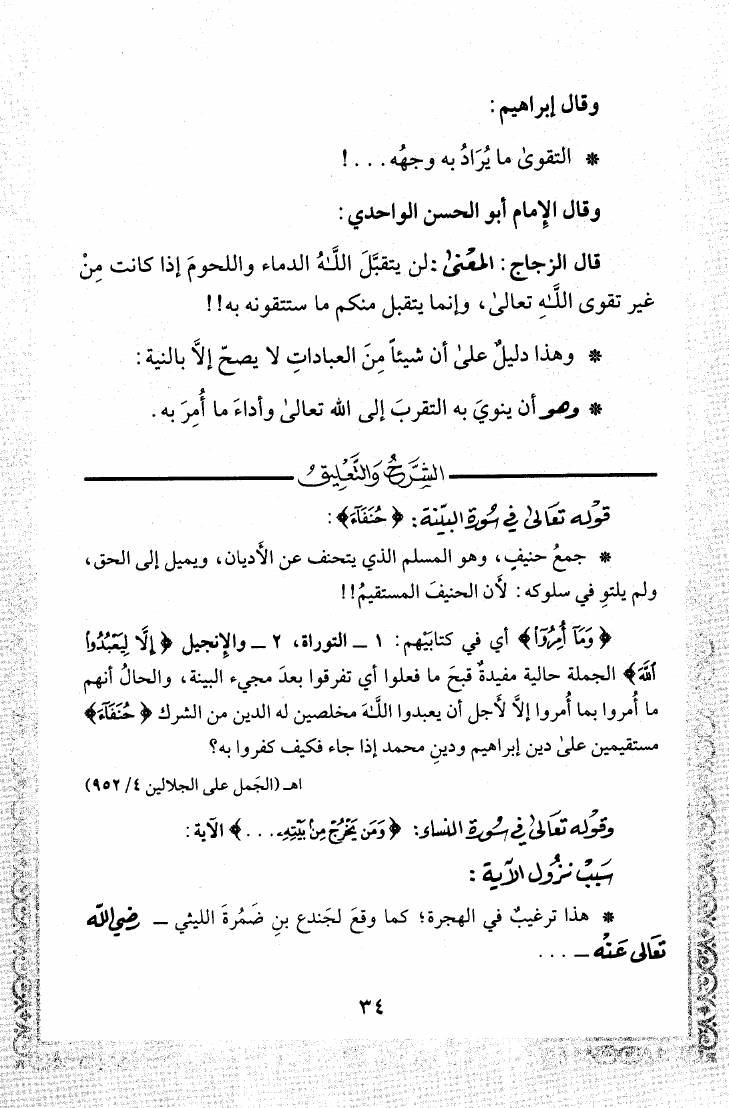 وقال إبراهيم :
* التقوىٰ ما يُرَادُ به وجهُه . . . !
وقال الإِمام أبو الحسن الواحدي :
قال الزجاج : المعْنىٰ : لن يتقبَّلَ اللَّـٰهُ الدماء واللحومَ إذا كانت مِنْ
غير تقوى اللَّـٰهِ تعالىٰ، وإنما يتقبل منكم ما ستتقونه به!!
* وهذا دليلٌ علىٰ أن شيئاً مِنَ العباداتِ لا يصحّ إلاَّ بالنية :
* وهو أن ينويَ به التقربَ إلى الله تعالىٰ وأداءَ ما أُمِرَ به .
الشَّرحُ والتَّعليق
قولُه تعَالىٰ في سُورة البيّنة : ﴿ حُنَفَآءَ﴾ :
* جمعُ حنيفٍ، وهو المسلم الذي يتحنف عن الأَديان، ويميل إلى الحق،
ولم يلتوِ في سلوكه : لأَن الحنيفَ المستقيمُ!!
﴿ وَمَآ أُمِرُوٓا۟﴾ أي في كتابيْهم : ١ ــ التوراة، ٢ ــ والإنجيل ﴿ إِلَّا لِيَعْبُدُوا۟
ٱللَّهَ﴾ الجملة حالية مفيدةٌ قبحَ ما فعلوا أي تفرقوا بعدَ مجيء البينة، والحالُ أنهم
ما أُمروا بما أُمروا إلاَّ لأَجل أن يعبدوا اللَّـٰهَ مخلصين له الدين من الشرك ﴿ حُنَفَآءَ﴾
مستقيمين علىٰ دين إبراهيم ودينِ محمد إذا جاء فكيف كفروا به؟
اهـ (الجَمل على الجلالين ٤/ ٩٥٢)
وقولُه تعَالىٰ في سُورة النساء : ﴿ وَمَن يَخْرُجْ مِنۢ بَيْتِهِۦ . . .﴾ الآية :
سَبَبُ نزُول الآية :
* هذا ترغيبٌ في الهجرة؛ كما وقعَ لجَندع بنِ ضَمُرةَ الليثي ــ رضيَ اللَّه
تعَالى عَنْه ــ . . .
٣٤